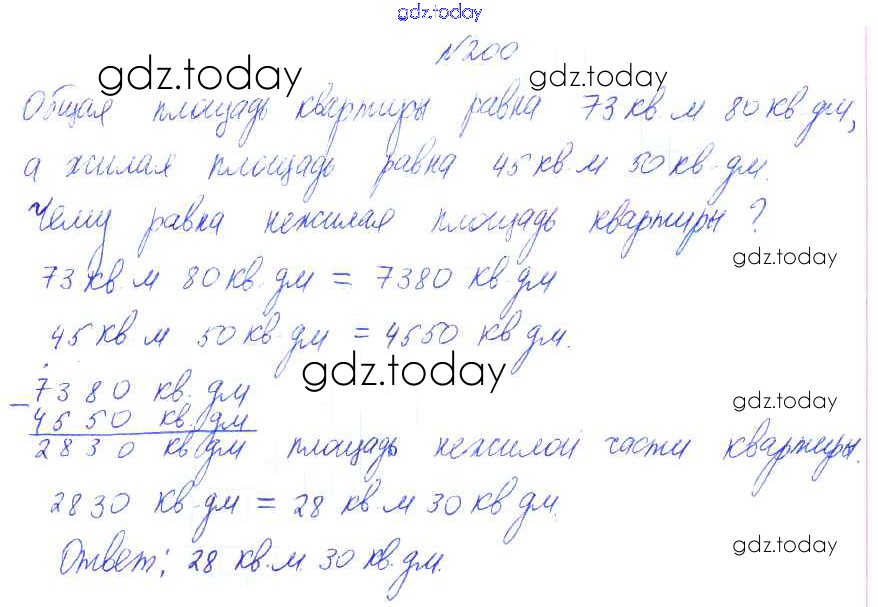 gdz.today
№200
gdz.today gdz.today
Общая площадь квартиры равна 73 кв.м 80 кв.дм,
а жилая площадь равна 45 кв.м 50 кв.дм.
Чему равна нежилая площадь квартиры?
gdz.today
73 кв.м 80 кв.дм = 7380 кв.дм
45 кв м 50 кв.дм = 4550 кв дм.
gdz.today
– 7380 кв.дм
gdz.today
4550 кв.дм
2830 кв дм площадь нежилой части квартиры.
2830 кв.дм = 28 кв.м 30 кв дм.
Ответ: 28 кв.м. 30 кв.дм.
gdz.today